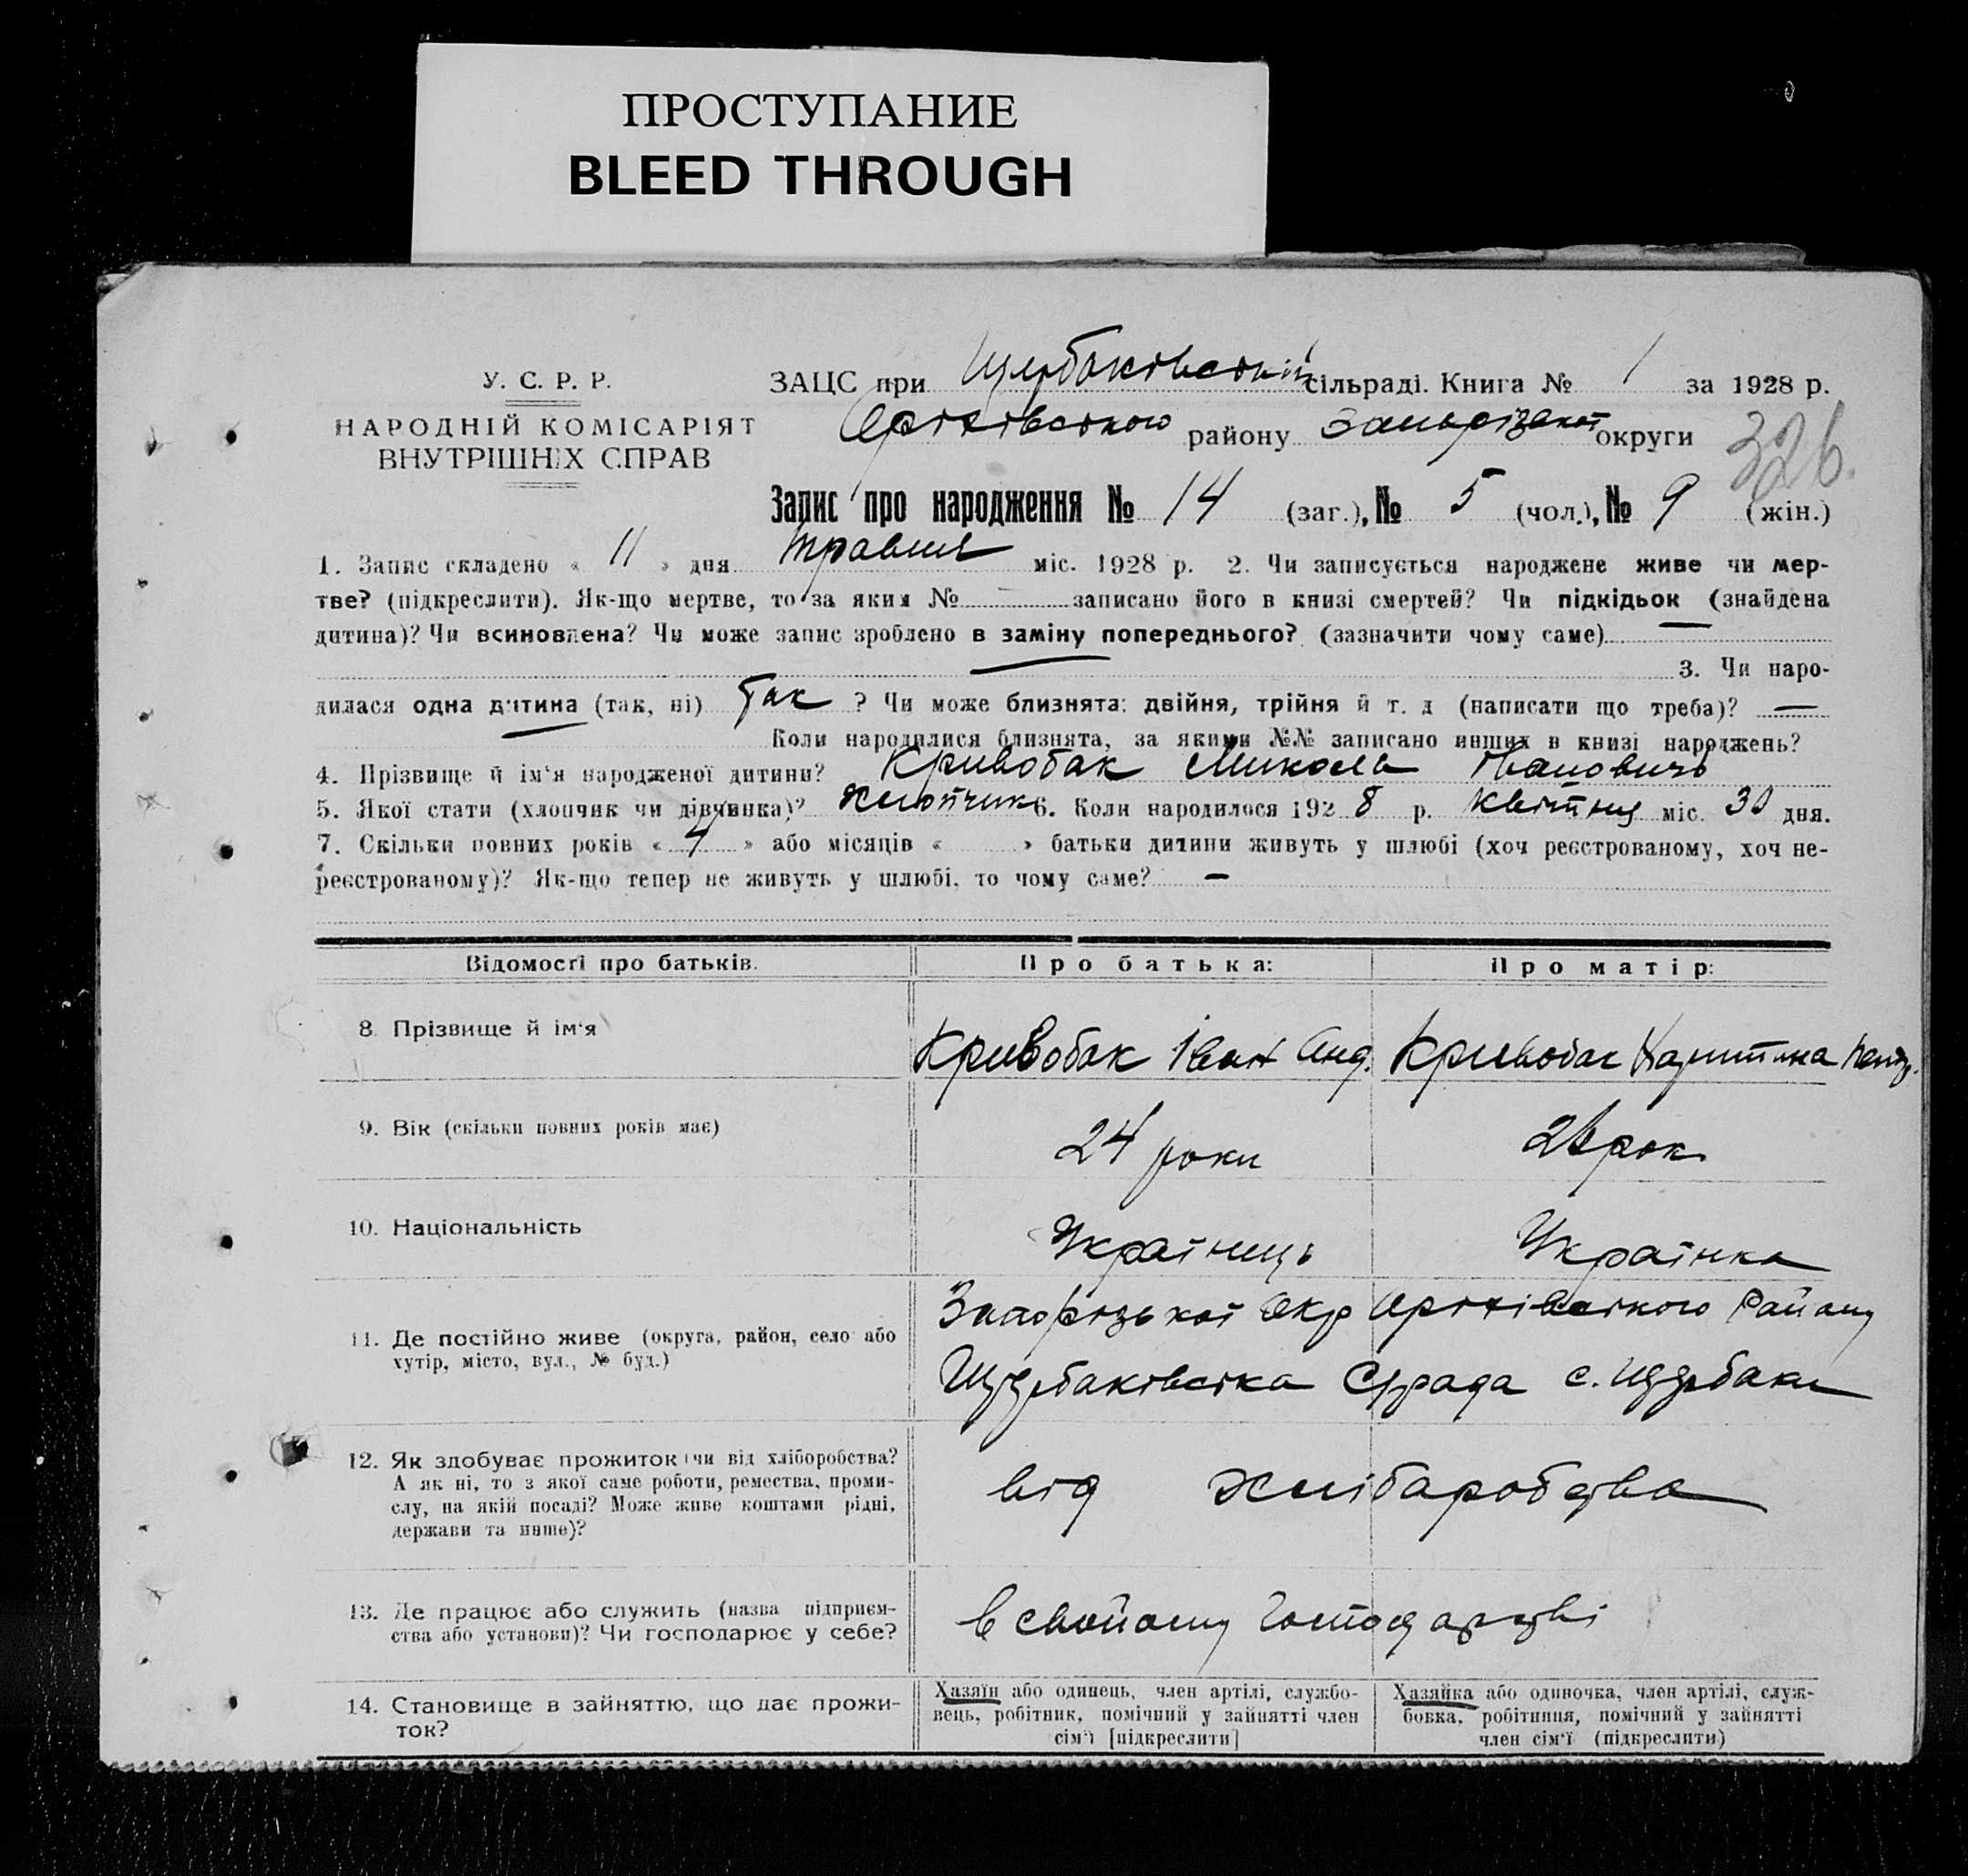 ПРОСТУПАНИЕ
BLEED THROUGH
У. С. Р. Р.
НАРОДНІЙ КОМІСАРІЯТ
ВНУТРІШНІХ СПРАВ
ЗАЦС при Щербаківській сільраді. Книга № 1 за 1928 р.
Оріхівського району Запорізької округи
326.
Запис про народження № 14 (заг.), № 5 (чол.), № 9 (жін.)
1. Запис складено « 11 » дня травня міс. 1928 р. 2. Чи записується народжене живе чи мер-
тве? (підкреслити). Як-що мертве, то за яким № — записано його в книзі смертей? Чи підкідьок (знайдена
дитина)? Чи всиновлена? Чи може запис зроблено в заміну попереднього? (зазначити чому саме)
3. Чи наро-
дилася одна дитина (так, ні) так ? Чи може близнята: двійня, трійня й т. д (написати що треба)? —
Коли народилися близнята, за якими №№ записано инших в книзі народжень?
4. Прізвище й ім'я народженої дитини? Кривобак Микола Іванович
5. Якої стати (хлопчик чи дівчинка)? хлопчик 6. Коли народилося 1928 р. квітня міс. 30 дня.
7. Скільки повних років « 7 » або місяців « » батьки дитини живуть у шлюбі (хоч реєстрованому, хоч не-
реєстрованому)? Як-що тепер не живуть у шлюбі, то чому саме? —
Відомості про батьків.
Про батька:
Про матір:
8. Прізвище й ім'я
Кривобак Іван Анд.
Кривобак
9. Вік (скільки повних років має)
24 роки
рок
10. Національність
Українець
Українка
11. Де постійно живе (округа, район, село або
хутір, місто, вул., № буд.)
Запорізької Окр Оріхівського Району
Щербаківська С/рада с. Щербаки
12. Як здобуває прожиток (чи від хліборобства?
А як ні, то з якої саме роботи, ремества, проми-
слу, на якій посаді? Може живе коштами рідні,
держави та инше)?
від хлібаробства
13. Де працює або служить (назва підприєм-
ства або установи)? Чи господарює у себе?
в свойому господарстві
14. Становище в зайняттю, що дає прожи-
ток?
Хазяїн або одинець, член артілі, службо-
вець, робітник, помічний у зайнятті член
сім'ї [підкреслити]
Хазяйка або одиночка, член артілі, служ-
бовка, робітниця, помічний у зайнятті
член сім'ї (підкреслити)